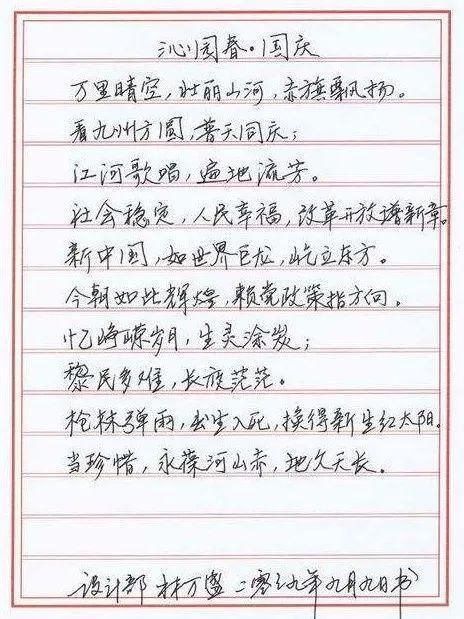 沁园春·国庆
万里晴空,壮丽山河,赤旗飘扬。
看九州方圆,普天同庆;
江河歌唱,遍地流芳。
社会稳定,人民幸福,改革开放谱新章。
新中国,如世界巨龙,屹立东方。
今朝如此辉煌,赖党政策指方向。
忆峥嵘岁月,生灵涂炭;
黎民多难,长夜茫茫。
枪林弹雨,出生入死,换得新生红太阳。
当珍惜,永葆河山赤,地久天长。
设计部 林万盛 二零一九年九月九日书